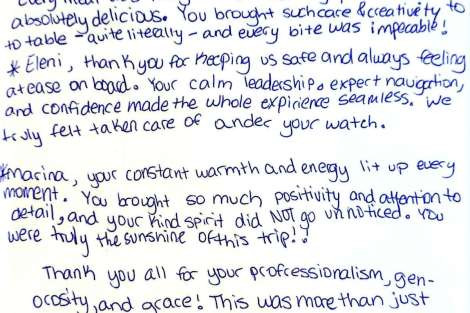 Every meal
absolutely delicious. You brought such care & creativity to
to table - quite liteally - and every bite was impecable!
* Eleni, thank you for keeping us safe and always feeling
at ease on board. Your calm leadership. expert navigation,
and confidence made the whole expirience seamless. We
truly felt taken care of under your watch.
*Marina, your constant warmth and energy lit up every
moment. You brought so much positivity and attention to
detail, and your kind spirit did NOT go unnoticed. You
were truly the sunshine of this trip!!
Thank you all for your profcessionalism, gen-
ocosity, and grace! This was more than just